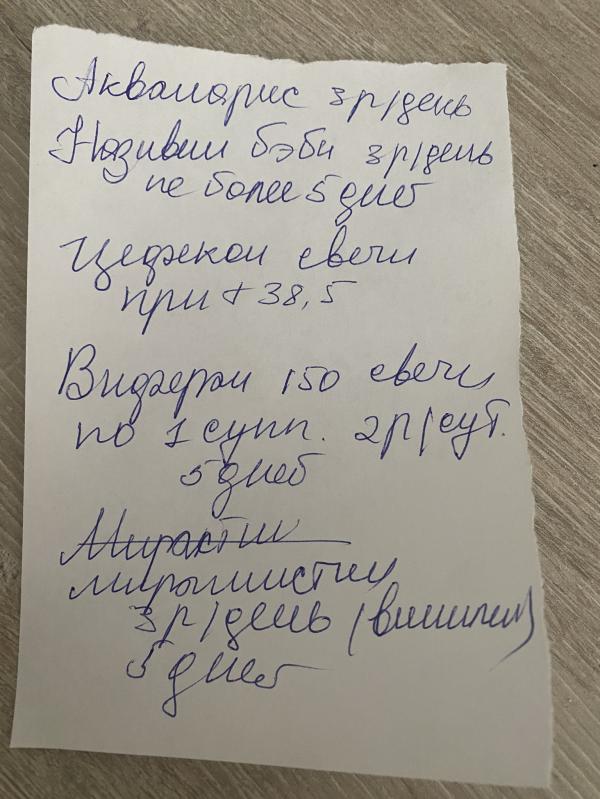 Аквамарис 3 р/день
Називин бэби 3 р/день
не более 5 дней
свечи
при t 38,5
Виферон 150 свечи
по 1 супп. 2 р/сут.
5 дней
Мирамистин
3 р/день
5 дней